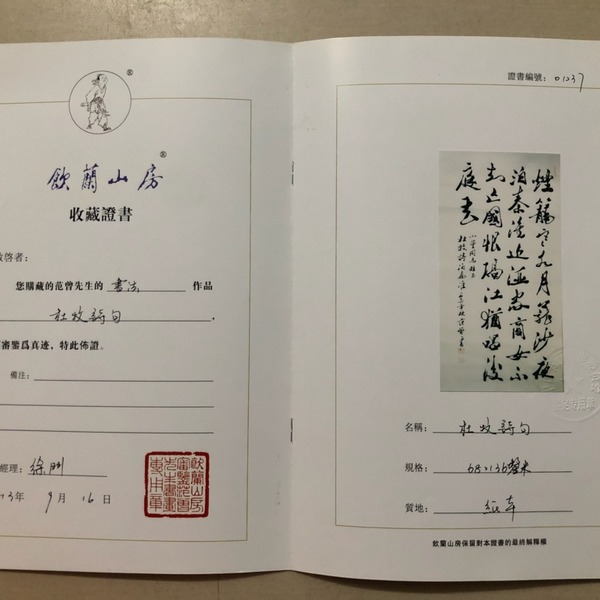 ®
飲蘭山房®
收藏證書
啓者：
您購藏的范曾先生的 書法 作品
杜牧詩句，
審鑒爲真迹，特此佈證。
備注：
經理：徐
13年 9月 16日
證書編號：01237
煙籠寒水月籠沙夜
泊秦淮近酒家商女不
知亡國恨隔江猶唱後
庭花
名稱：杜牧詩句
規格：68×136厘米
質地：紙本
飲蘭山房保留對本證書的最終解釋權